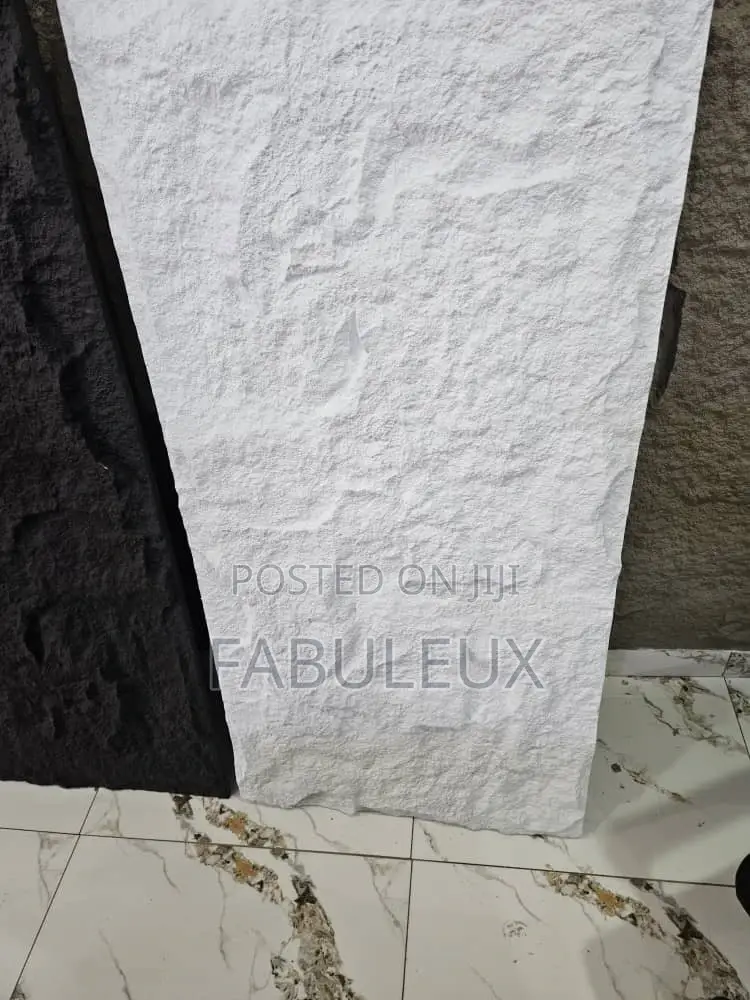 POSTED ON JIJI
FABULEUX